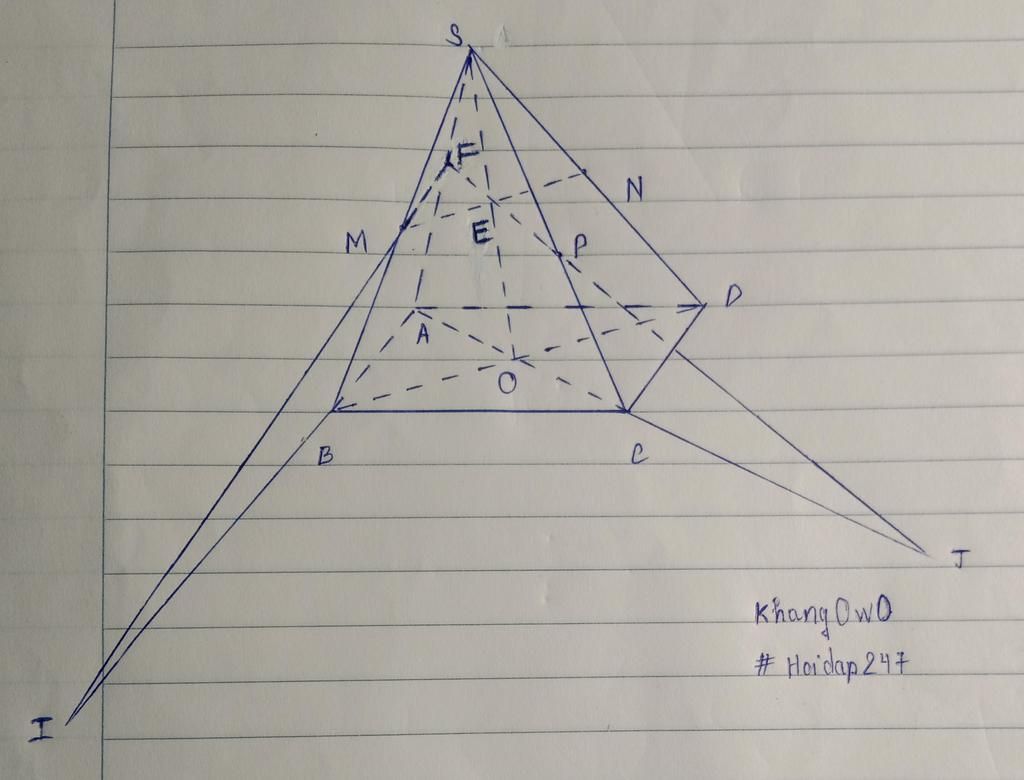 S
F
N
M
E
P
D
A
O
B
C
J
KhangOwO
# Hoidap247
I